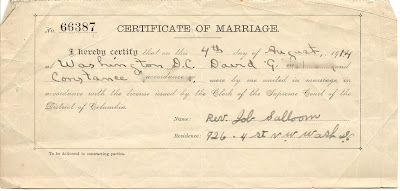 No. 66387 CERTIFICATE OF MARRIAGE.
I hereby certify that on this 4th day of August, 1914
at Washington D.C. David G. and
Constance were by me united in marriage in
accordance with the license issued by the Clerk of the Supreme Court of the
District of Columbia.
Name: Rev. Job Salloom
Residence: 926 - 4 st N.W. Wash
To be delivered to contracting parties.